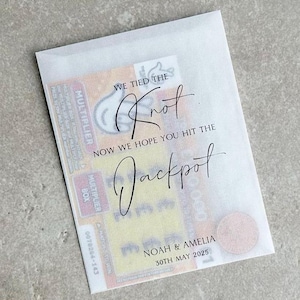 WE TIED THE
Knot
NOW WE HOPE YOU HIT THE
Jackpot
NOAH & AMELIA
30TH MAY 2025
MULTIPLIER
MULTIPLIER
BOX